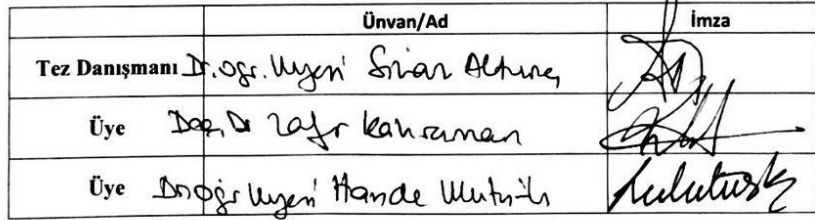 Ünvan/Ad İmza
Tez Danışmanı Dr. Öğr. Üyesi Sinan
Üye Doç. Dr Zafer Kahraman
Üye Dr. Öğr Üyesi Hande